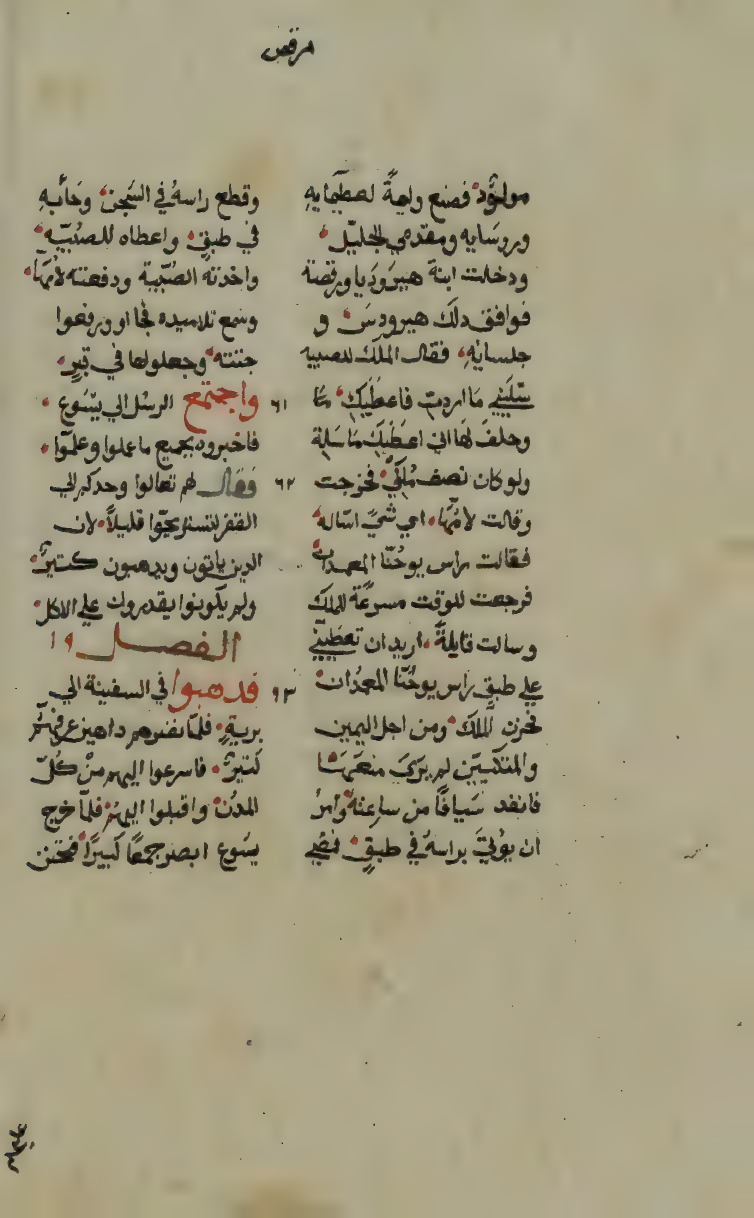 مرقص
مولوُد فصنع وليمةً لعظمايهِ
وروسَايه ومقدمي الجليل
ودخلت ابنة هيرَودَيا ورقصة
فوافق دلك هيرودسَ و
جلسائهِ فقال الملك للصبيه
سَلَيني مَا اردتِ فاعطَيكِ
وحلف لهَا اني اعطيَكِ مَا سَلة
ولو كان نصف مُلكيَ فخرجت
وقالت لامُهّا اي شيَ اسَاله
فقالت راس يوحُنّا المعمدان
فرجعت للوقت مسرعَة للملك
وسالت قايلةً اريد ان تعطَينّي
علي طبقٍ راس يوحُنّا المعمُدان
فحزن الملك ومن اجل اليمين
والمتكيَين لم يرَىَ منعهَا
فانفد سَيافًا من ساعته وامرُ
ان يوُتيَ براسهُ في طبقٍ فمضي
وقطع راسهُ في السَجن وجَأبهِ
في طبقٍ واعطاه للصُبيّه
واخدته الصُبيّة ودفعته لامُهّا
وسَمع تلاميده فجااو ورفعوا
جتته وجعلوها في قبرٍ
٦١ واجتمع الرسُل الي يسَوع
فاخبروه بجميع ما عملوا وعلمّوا
٦٢ فَقال لهم تعالوا وحدكم الي
القفر لتستريحّوا قليلاً لان
الدين ياتون ويدهبون كتيرٌ
ولم يكونوا يقدرون علي الاكل
الفصل ١٩
٦٣ فدهبوا في السفينة الي
بريةٍ فلمّا نضرهم داهبين عرفهُم
كتيرٌ فاسرعوا اليهم منْ كُلّ
المدُن واقبلوا اليهُم فلمّا خرج
يسَوع ابصر جمعًا كبيرًا فتحنن